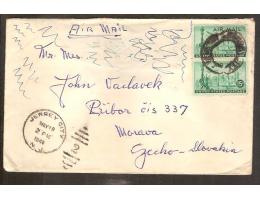 AIR MAIL
Mr. Mrs.
John Vaclavek
Příbor čís 337
Morava
Czecho-Slovakia
JERSEY CITY
N.J.
AIR MAIL
UNITED STATES POSTAGE